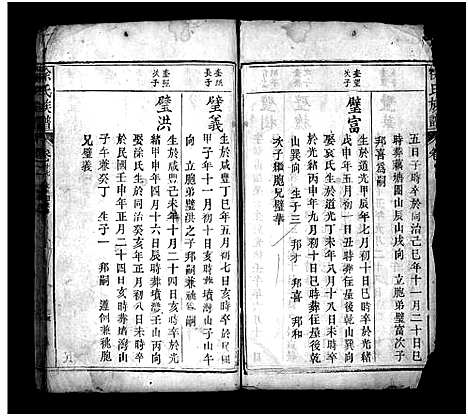 徐氏族譜
五日子時卒於同治己巳年十一月二十日巳
時葬大墳圍山辰山戌向 立胞弟璧富次子
邦喜為嗣
璧富
生於道光甲辰年七月初十日巳時卒於光緒
戊申年五月初一日丑時葬於住屋後乾
娶袁氏生於道光丁未年八月十八日未時
卒於光緒丙申年九月初十日巳時葬住屋後乾
山巽向 生子三 邦才 邦喜 邦和
次子繼胞兄璧華
璧義
生於咸豐丁巳年五月初七日亥時卒於民國
甲子年十一月初十日亥時葬墳灣山子山午
向 立胞弟璧洪之子邦嗣兼祧為嗣
璧洪
生於咸豐己未年十月二十四日亥時卒於光
緒甲申年四月十六日辰時葬墳灣壬山丙向
娶徐氏生於同治癸亥年正月初八日巳時卒
於民國壬申年正月二十四日亥時葬灣山
子午兼癸丁 生子一 邦嗣 遵例兼祧胞
兄璧義
徐氏族譜